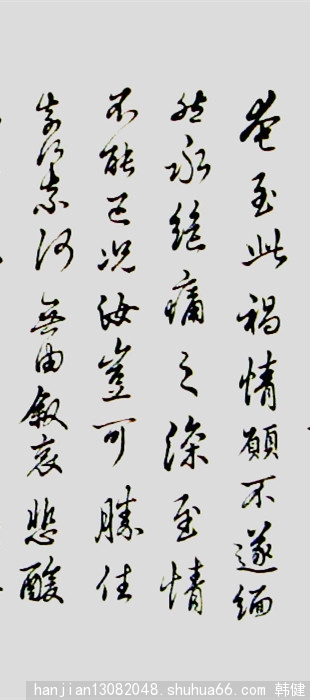 奄至此禍情願不遂緬
然永絶痛之深至情
不能已況汝豈可勝任
奈何奈何無由敘哀悲酸
hanjian13082048.shuhua66.com 韩健